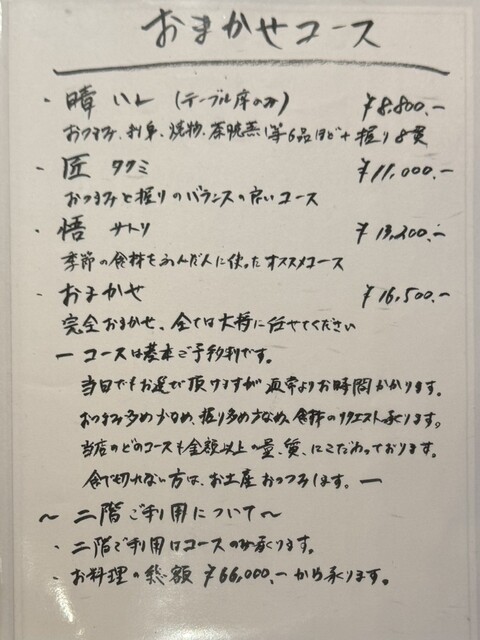 おまかせコース
・晴 ハレ (テーブル席のみ) ¥8,800.-
おつまみ、お刺身、焼物、茶碗蒸し等6品ほど+握り8貫
・匠 タクミ ¥11,000.-
おつまみと握りのバランスの良いコース
・悟 サトリ ¥13,200.-
季節の食材をふんだんに使ったオススメコース
・おまかせ ¥16,500.-
完全おまかせ、全ては大将に任せてください
ー コースは基本ご予約制です。
当日でもお選び頂けますが通常よりお時間かかります。
おつまみ多め少なめ、握り多め少なめ、食材のリクエスト承ります。
当店のどのコースも金額以上の量、質、にこだわっております。
食べ切れない方は、お土産おつつみします。ー
〜 二階ご利用について〜
・二階ご利用はコースのみ承ります。
・お料理の総額 ¥66,000.-から承ります。